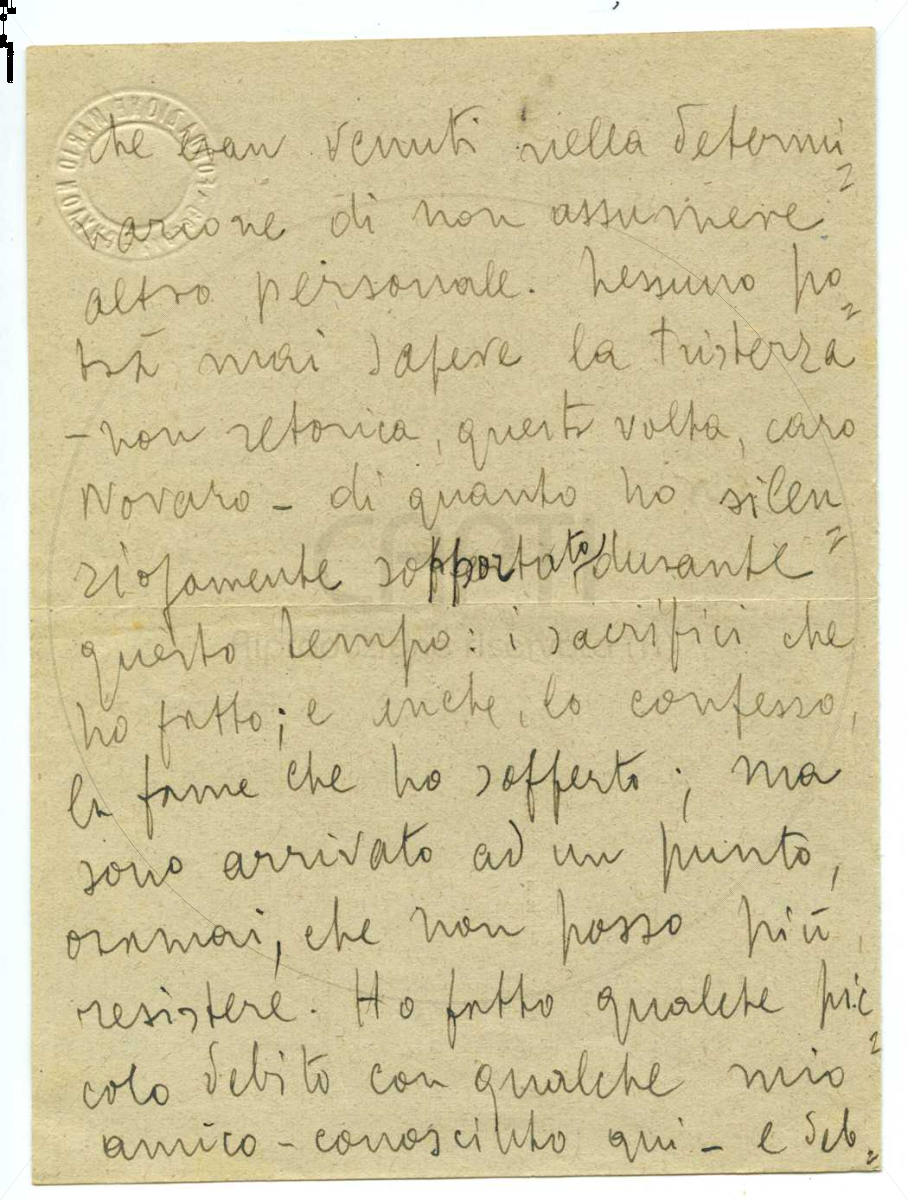 che eran venuti nella determi=
nazione di non assumere
altro personale. Nessuno po=
trà mai sapere la tristezza
– non retorica, questa volta, caro
Novaro – di quanto ho silen=
ziosamente sopportato durante
questo tempo: i sacrifici che
ho fatto; e anche, lo confesso,
la fame che ho sofferto; ma
sono arrivato ad un punto,
oramai, che non posso più
resistere. Ho fatto qualche pic=
colo debito con qualche mio
amico – conosciuto qui – e deb=